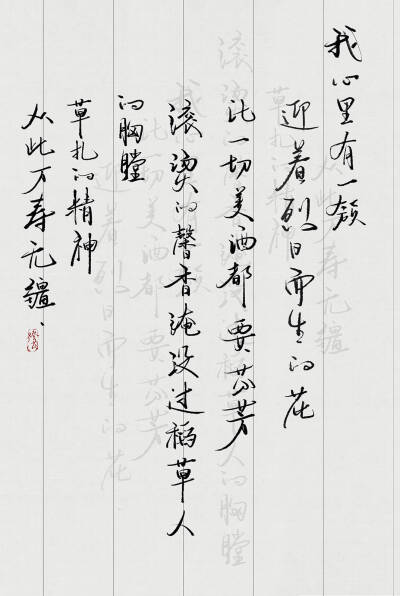 我心里有一簇
迎着烈日而生的花
比一切美酒都要芬芳
滚烫的馨香淹没过稻草人
的胸膛
草扎的精神
从此万寿无疆、